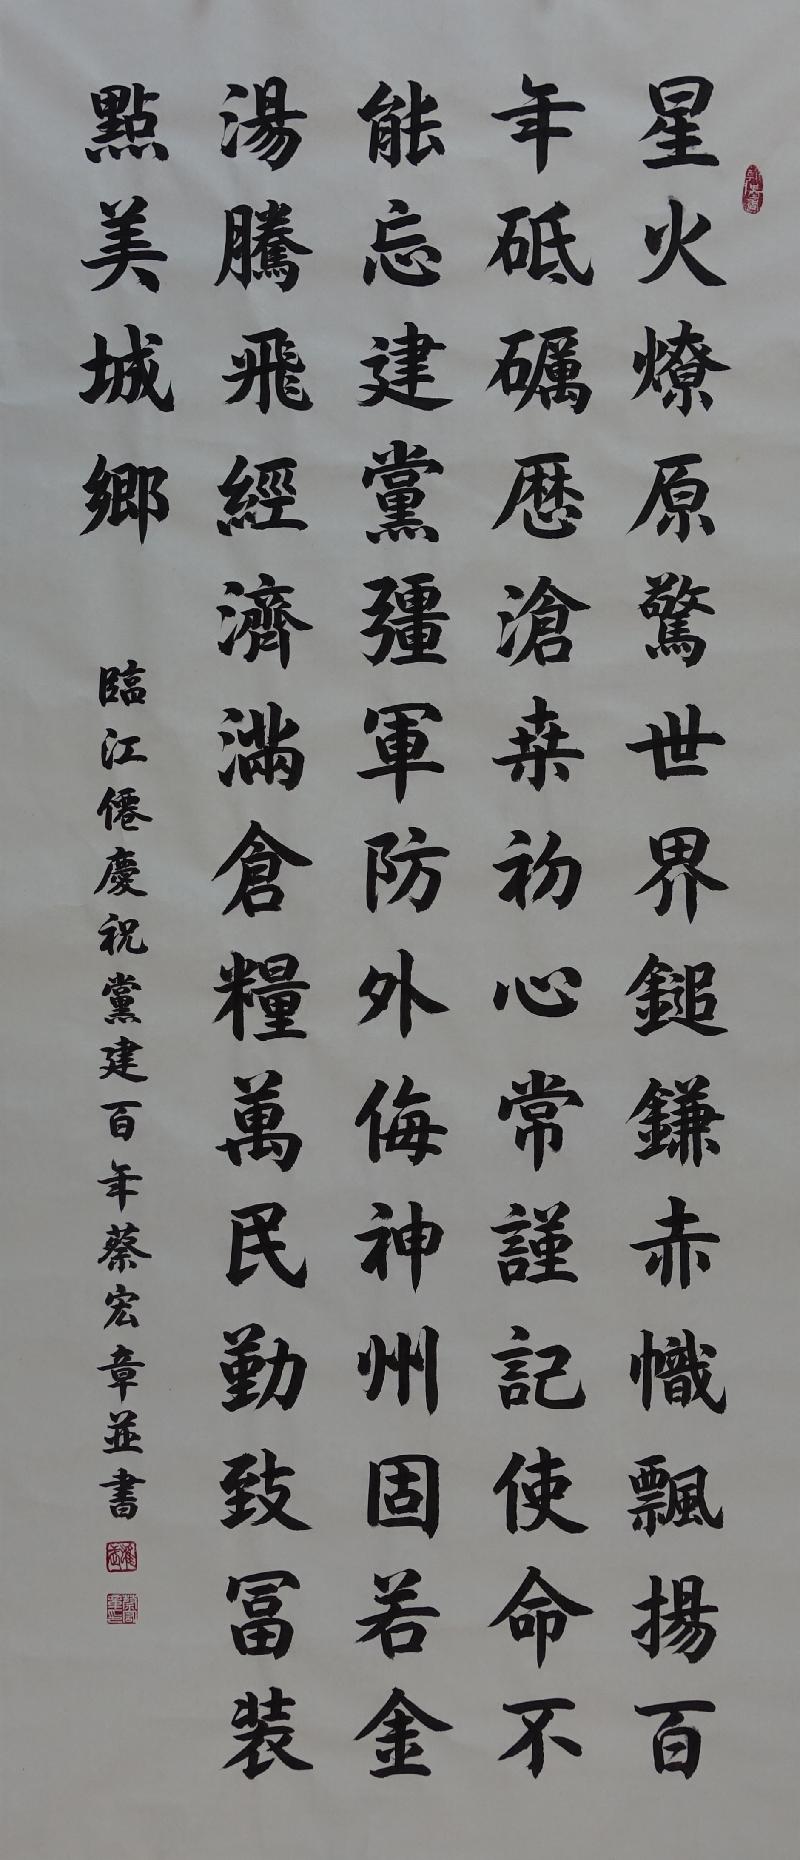 星火燎原驚世界鎚鎌赤幟飄揚百
年砥礪歷滄桒初心常謹記使命不
能忘建黨彊軍防外侮神州固若金
湯騰飛經濟滿倉糧萬民勤致冨裝
點美城鄉
臨江僊慶祝黨建百年蔡宏章並書